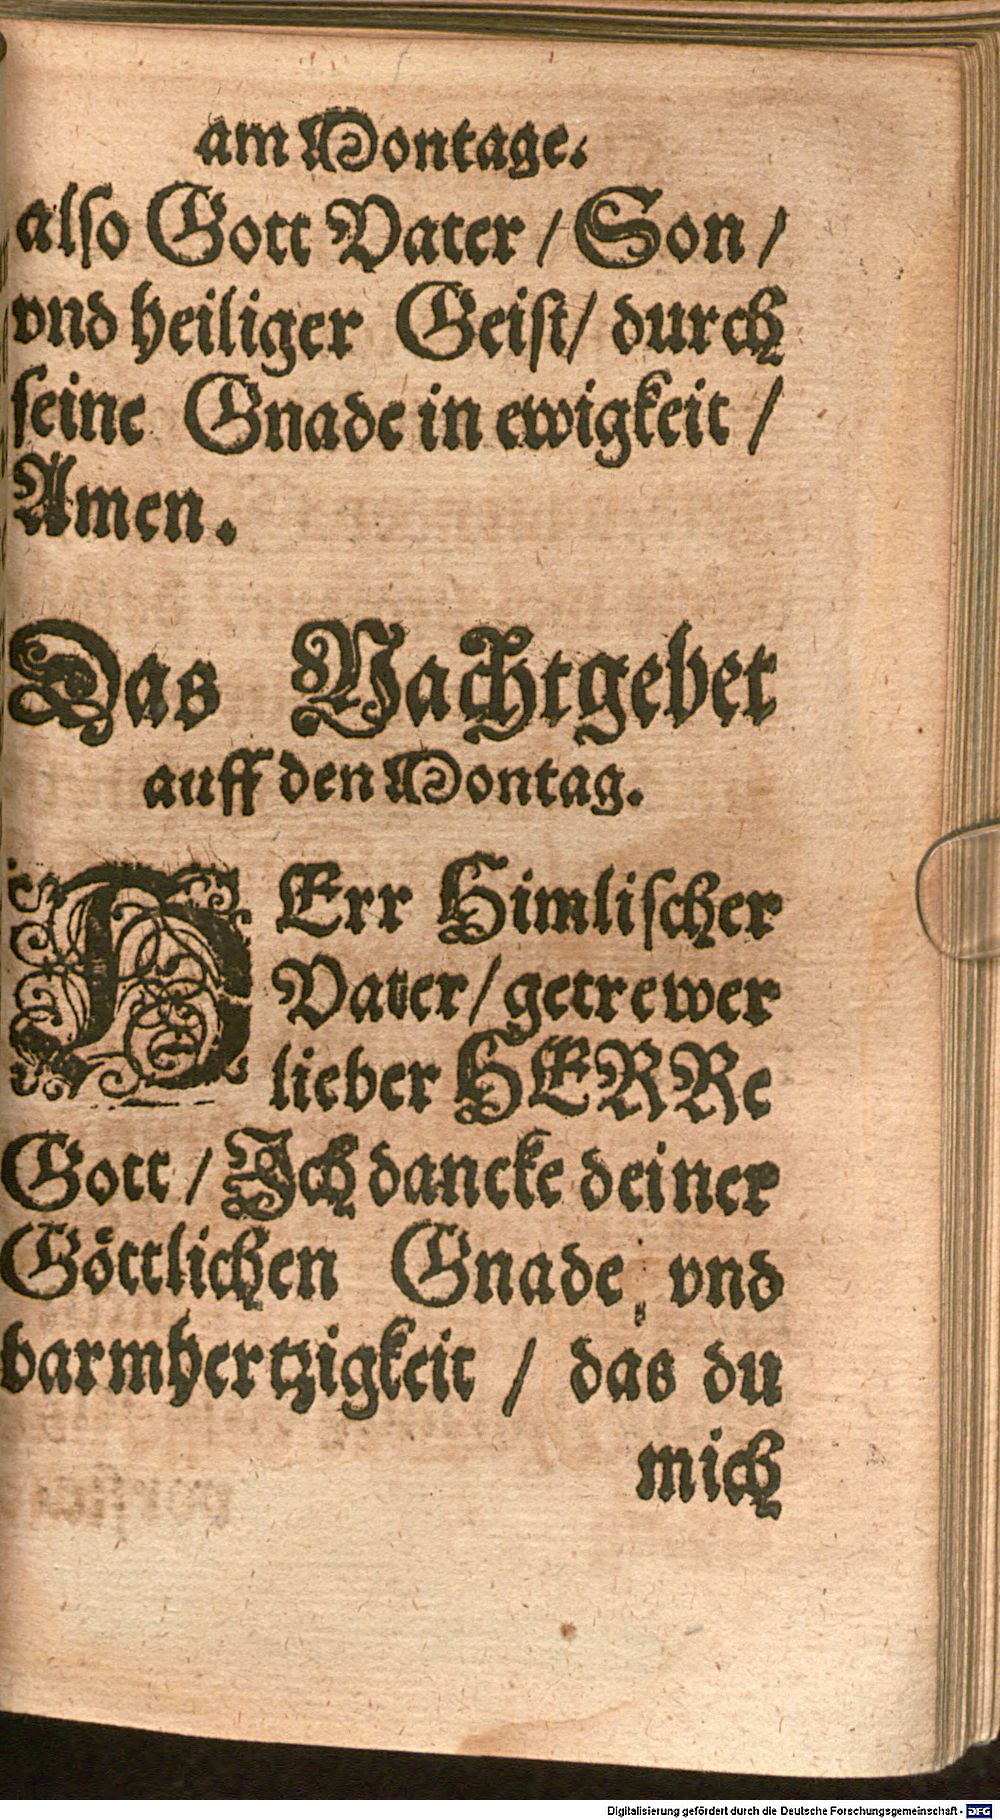 am Montage.
also Gott Vater / Son /
vnd heiliger Geist / durch
seine Gnade in ewigkeit /
Amen.
Das Nachtgebet
auff den Montag.
HErr Himlischer
Vater / getrewer
lieber HERRe
Gott / Ich dancke deiner
Göttlichen Gnade vnd
barmhertzigkeit / das du
mich
Digitalisierung gefördert durch die Deutsche Forschungsgemeinschaft - DFG